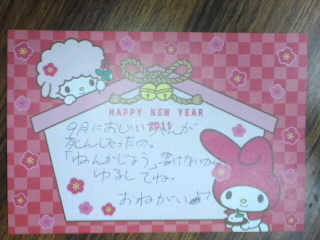 HAPPY NEW YEAR
2011
9月におじいちゃんが
死んじゃったの。
「ねんがじょう」書けないから
ゆるしてね。
おねがい